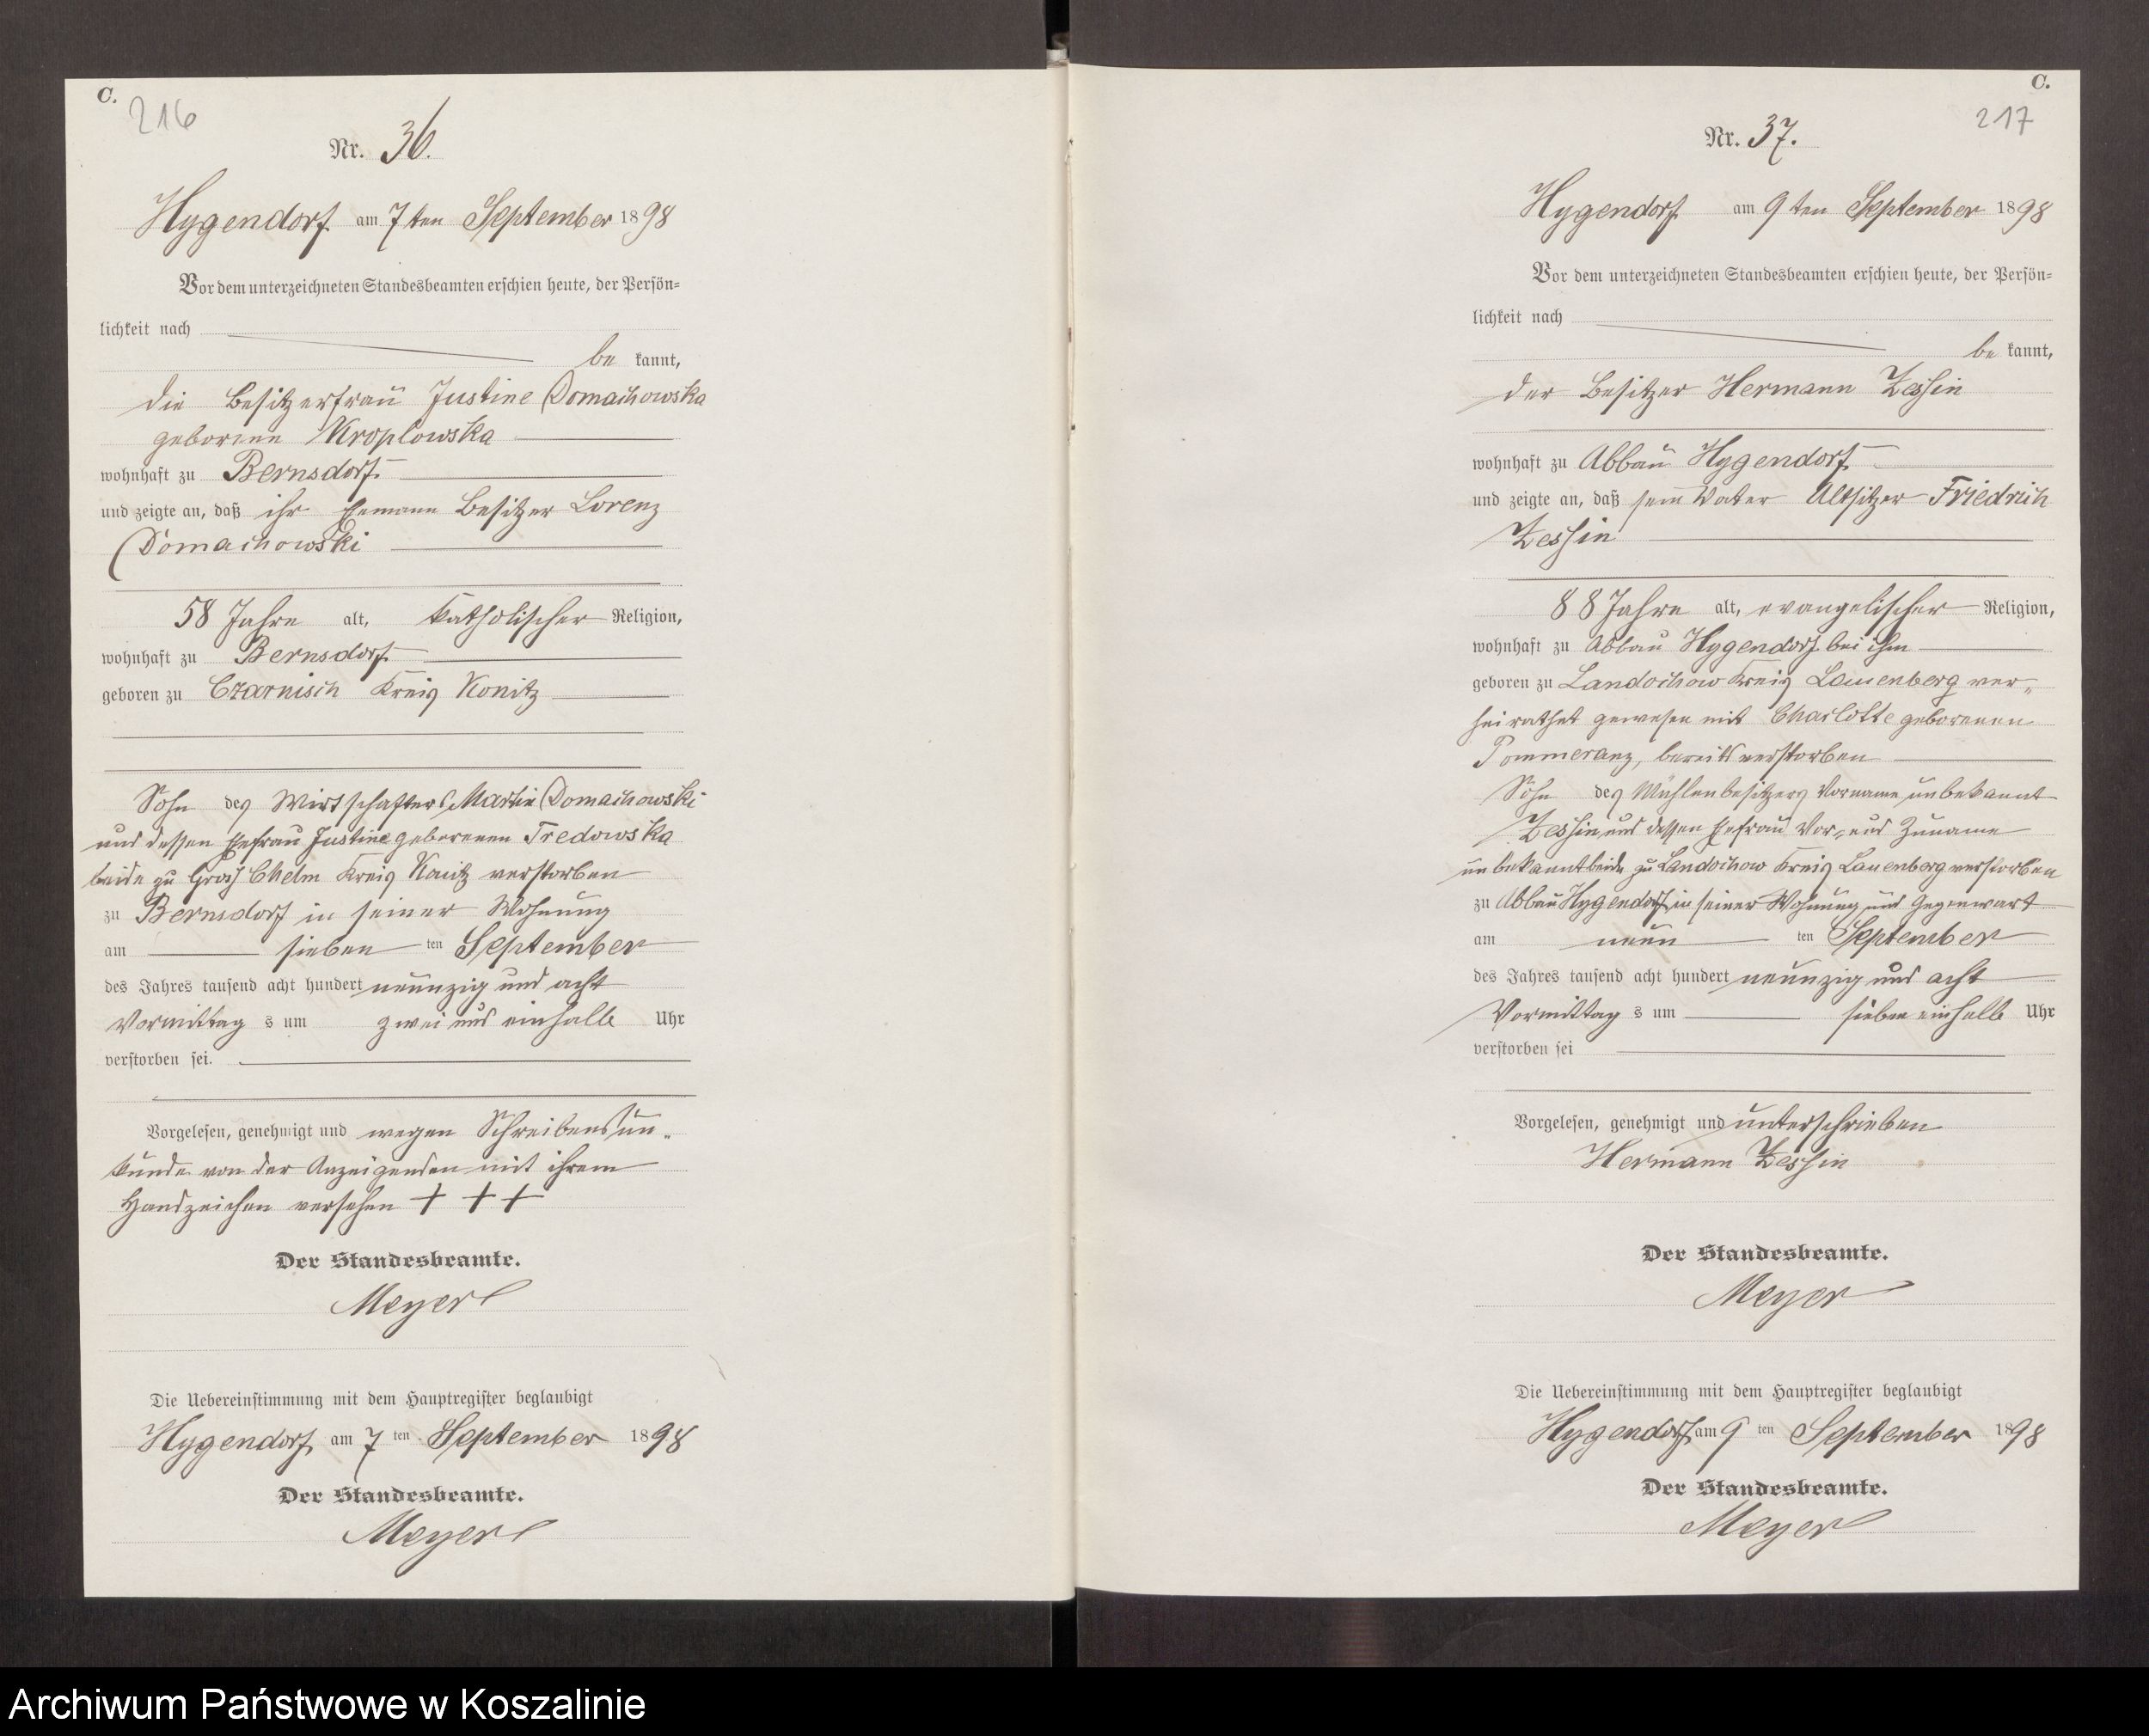 C.
216
Nr. 36.
Hygendorf am 7ten September 1898
Vor dem unterzeichneten Standesbeamten erschien heute, der Persön-
lichkeit nach
be kannt,
die Besitzerfrau Justine Domachowska
geborene Kroplowska
wohnhaft zu Bernsdorf
und zeigte an, daß ihr Ehemann Besitzer Lorenz
Domachowski
58 Jahre alt, katholischer Religion,
wohnhaft zu Bernsdorf
geboren zu Czarnisch Kreis Konitz
Sohn des Wirtschafters Martin Domachowski
und dessen Ehefrau Justine geborenen Tredowska
beide zu Groß Chelm Kreis Konitz verstorben
zu Bernsdorf in seiner Wohnung
am sieben ten September
des Jahres tausend acht hundert neunzig und acht
Vormittag s um zwei und einhalb Uhr
verstorben sei.
Vorgelesen, genehmigt und wegen Schreibensun-
kunde von der Anzeigenden mit ihrem
Handzeichen versehen + + +
Der Standesbeamte.
Meyer
Die Uebereinstimmung mit dem Hauptregister beglaubigt
Hygendorf am 7 ten September 1898
Der Standesbeamte.
Meyer
C.
217
Nr. 37.
Hygendorf am 9ten September 1898
Vor dem unterzeichneten Standesbeamten erschien heute, der Persön-
lichkeit nach
be kannt,
der Besitzer Hermann Zessin
wohnhaft zu Abbau Hygendorf
und zeigte an, daß sein Vater Altsitzer Friedrich
Zessin
88 Jahre alt, evangelischer Religion,
wohnhaft zu Abbau Hygendorf bei ihm
geboren zu Landochow Kreis Lauenberg ver-
heirathet gewesen mit Charlotte geborenen
Pommeranz, bereits verstorben
Sohn des Mühlenbesitzers Vorname unbekannt
Zessin und dessen Ehefrau Vor- und Zuname
unbekannt beide zu Landochow Kreis Lauenberg verstorben
zu Abbau Hygendorf in seiner Wohnung und Gegenwart
am neun ten September
des Jahres tausend acht hundert neunzig und acht
Vormittag s um sieben einhalb Uhr
verstorben sei
Vorgelesen, genehmigt und unterschrieben
Hermann Zessin
Der Standesbeamte.
Meyer
Die Uebereinstimmung mit dem Hauptregister beglaubigt
Hygendorf am 9 ten September 1898
Der Standesbeamte.
Meyer
Archiwum Państwowe w Koszalinie